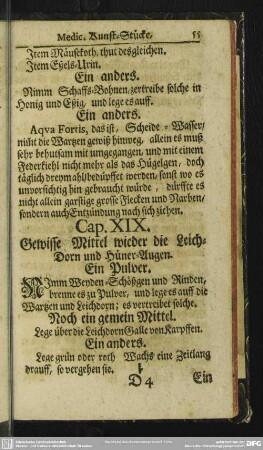 Medic. Kunst-Stücke. 55
Item Mäusekoth, thut desgleichen.
Item Esels-Urin.
Ein anders.
Nimm Schaffs-Bohnen, zertreibe solche in
Honig und Eßig, und lege es auff.
Ein anders.
Aqva Fortis, das ist, Scheide-Wasser,
nim̃t die Wartzen gewiß hinweg, allein es muß
sehr behutsam mit umgegangen, und mit einem
Federkiehl nicht mehr als das Hügelgen, doch
täglich dreymahl bedüpffet werden, sonst wo es
unvorsichtig hin gebraucht würde, dürffte es
nicht allein garstige grosse Flecken und Narben,
sondern auch Entzündung nach sich ziehen.
Cap. XIX.
Gewisse Mittel wieder die Leich-
Dorn und Hüner-Augen.
Ein Pulver.
NImm Weyden-Schößgen und Rinden,
brenne es zu Pulver, und lege es auff die
Wartzen und Leichdorn; es vertreibet solche.
Noch ein gemein Mittel.
Lege über die Leichdorn Galle von Karpffen.
Ein anders.
Lege grün oder roth Wachs eine Zeitlang
drauff, so vergehen sie.
D 4 Ein